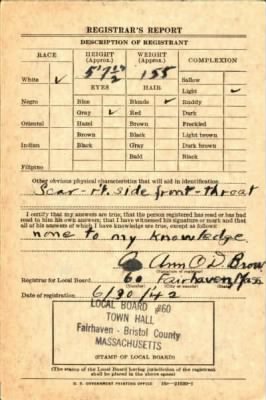 REGISTRAR'S REPORT
DESCRIPTION OF REGISTRANT
RACE HEIGHT (Approx.) WEIGHT (Approx.) COMPLEXION
White ✓ 5'7½ 155 Sallow
EYES HAIR Light ✓
Negro Blue Blonde ✓ Ruddy
Gray ✓ Red Dark
Oriental Hazel Brown Freckled
Brown Black Light brown
Indian Black Gray Dark brown
Bald Black
Filipino
Other obvious physical characteristics that will aid in identification
Scar-rt. side front-throat
I certify that my answers are true; that the person registered has read or has had
read to him his own answers; that I have witnessed his signature or mark and that
all of his answers of which I have knowledge are true, except as follows:
none to my knowledge
Ann O'D Brow
(Signature of registrar)
Registrar for Local Board 60 Fairhaven Mass
(Number) (City or county)
Date of registration 6/30/42
LOCAL BOARD #60
TOWN HALL
Fairhaven - Bristol County
MASSACHUSETTS
(STAMP OF LOCAL BOARD)
(The stamp of the Local Board having jurisdiction of the registrant
shall be placed in the above space)
U. S. GOVERNMENT PRINTING OFFICE 16—21630-1